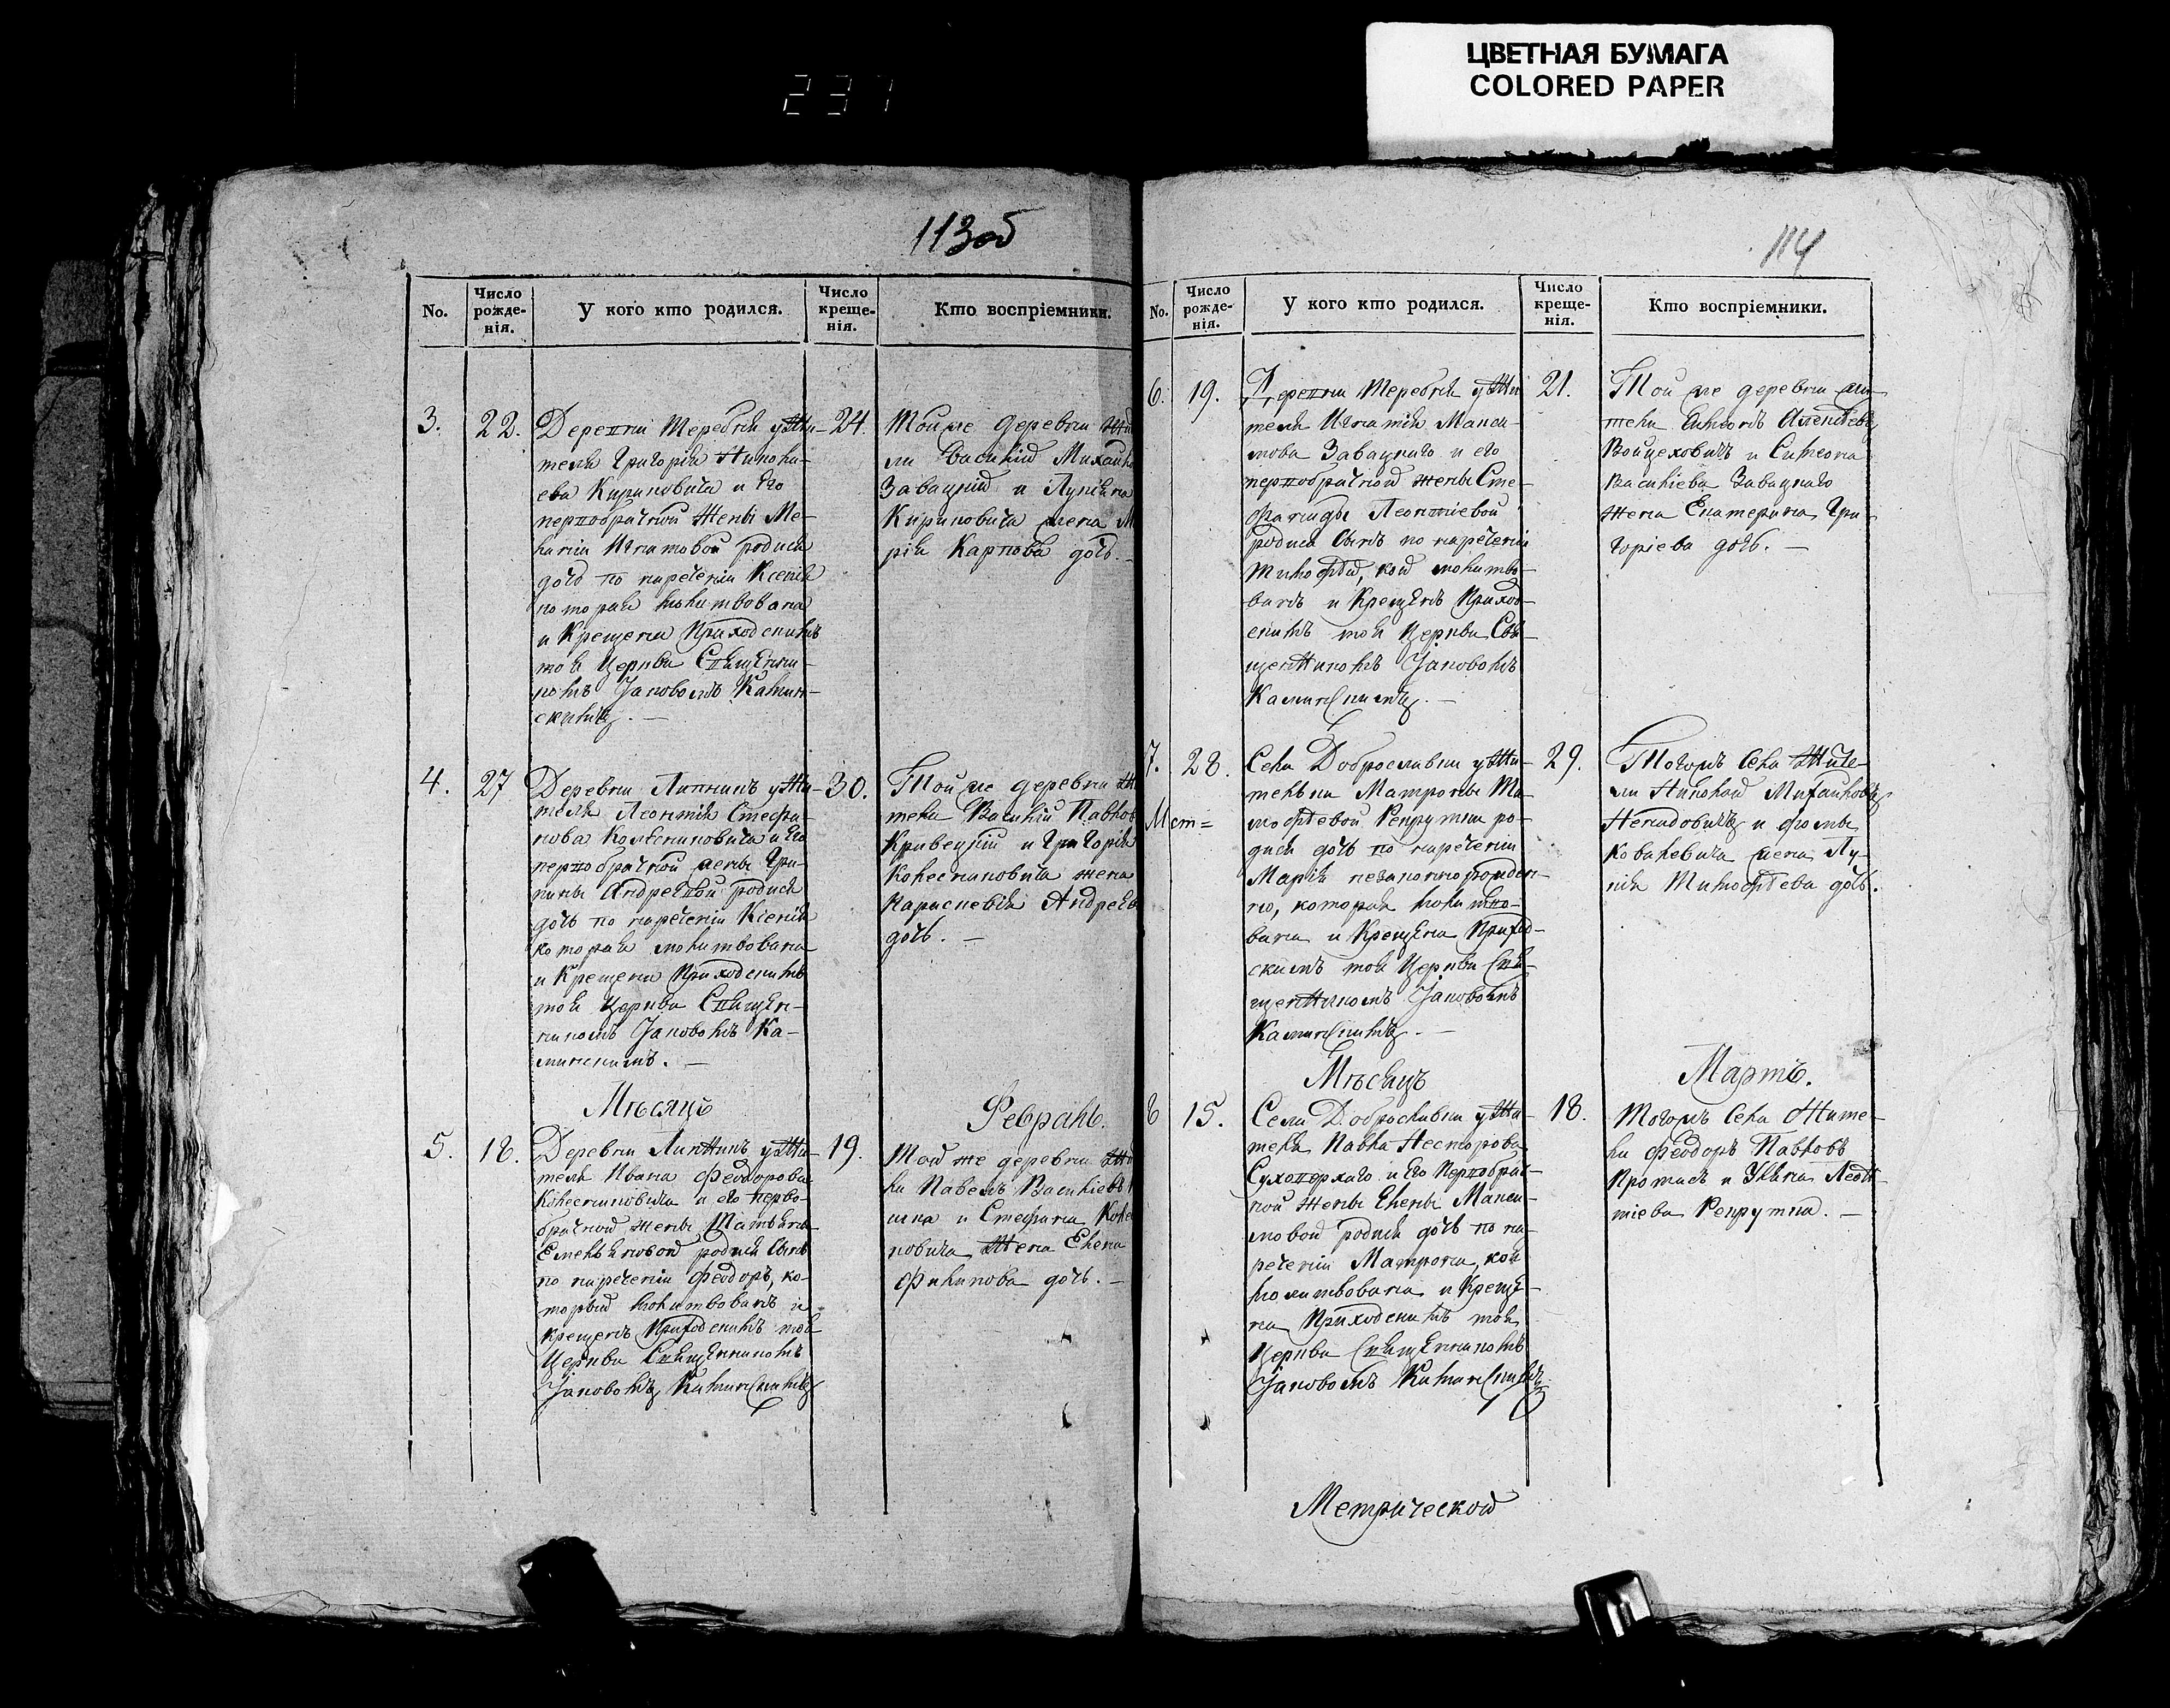 ЦВЕТНАЯ БУМАГА
COLORED PAPER
237
113об
No.
Число рожде-нія.
У кого кто родился.
Число креще-нія.
Кто воспріемники.
3.
22.
Деревни Теребни у жи-
теля Григорія Никола-
ева Кириковича и его
первобрачной жены Ме-
ланіи Игнатовой родися
дочь по наречени Ксенія
которая молитвована
и крещена Приходскимъ
тоя Церкви Священни-
комъ Іаковомъ Камин-
скимъ. —
24.
Той же деревни
ли Василій
Завацкій и
Кириковича жена
рія Карпова дочь. —
4.
27
Деревни Липникъ у жи-
теля Леонтія Стефа-
нова Колесниковича и его
первобрачной жены Гри-
пины Андреевой родися
дочь по наречени Ксенія
которая молитвована
и крещена Приходскимъ
тоя Церкви Священ-
никомъ Іаковомъ Ка-
минскимъ. —
30.
Той же деревни
тели Василій
Кривецкій и Григорія
Колесниковича жена
Параскевія
дочь. —
Мѣсяцъ
Февраль.
5.
18.
Деревни Липникъ у жи-
теля Ивана Феодорова
Колесниковича и его перво-
брачной жены Татьяны
Емельяновой родися сынъ
по наречени Феодоръ, ко-
торый молитвованъ и
крещенъ Приходскимъ тоя
Церкви Священникомъ
Іаковомъ Каминскимъ
19.
Той же деревни
ли Павелъ Васильевъ
и Стефана
новича жена Елена
Филипова дочь. —
114
No.
Число рожде-нія.
У кого кто родился.
Число креще-нія.
Кто воспріемники.
6.
19.
Деревни Теребни у жи-
теля Игнатія Макси-
мова Завацкаго и его
первобрачной жены Сте-
фаниды Леонтіевой
родися сынъ по наречени
Тимофѣй, кой молитво-
ванъ и крещенъ Приход-
скимъ тоя Церкви Свя-
щенникомъ Іаковомъ
Каминскимъ. —
21.
Той же деревни жи-
тели
Войцеховичъ и Симеона
Василіева Завацкаго
жена Екатерина Гри-
горіева дочь. —
7.
28.
Мет=
Села Доброславки у жи-
тельки Матроны Ти-
мофѣевой Репрутки ро-
дися дочь по наречени
Марія незаконнорожден-
но, которая молитво-
вана и крещена Приход-
скимъ тоя Церкви Свя-
щенникомъ Іаковомъ
Каминскимъ. —
29.
Тогожъ села жите-
ли Николай Михайловъ
и Фомы
Ковалевича жена Лу-
кія Тимофѣева дочь.
Мѣсяцъ
Мартъ.
8
15.
Села Доброславки у жи-
теля Павла Несторова
и его первобрач-
ной жены Елены Макси-
мовой родися дочь по на-
речени Матрона, коя
молитвована и креще-
на Приходскимъ тоя
Церкви Священникомъ
Іаковомъ Каминскимъ
18.
Тогожъ села жите-
ли Феодоръ Павловъ
и Леон-
тіева Репрутка. —
Метрической